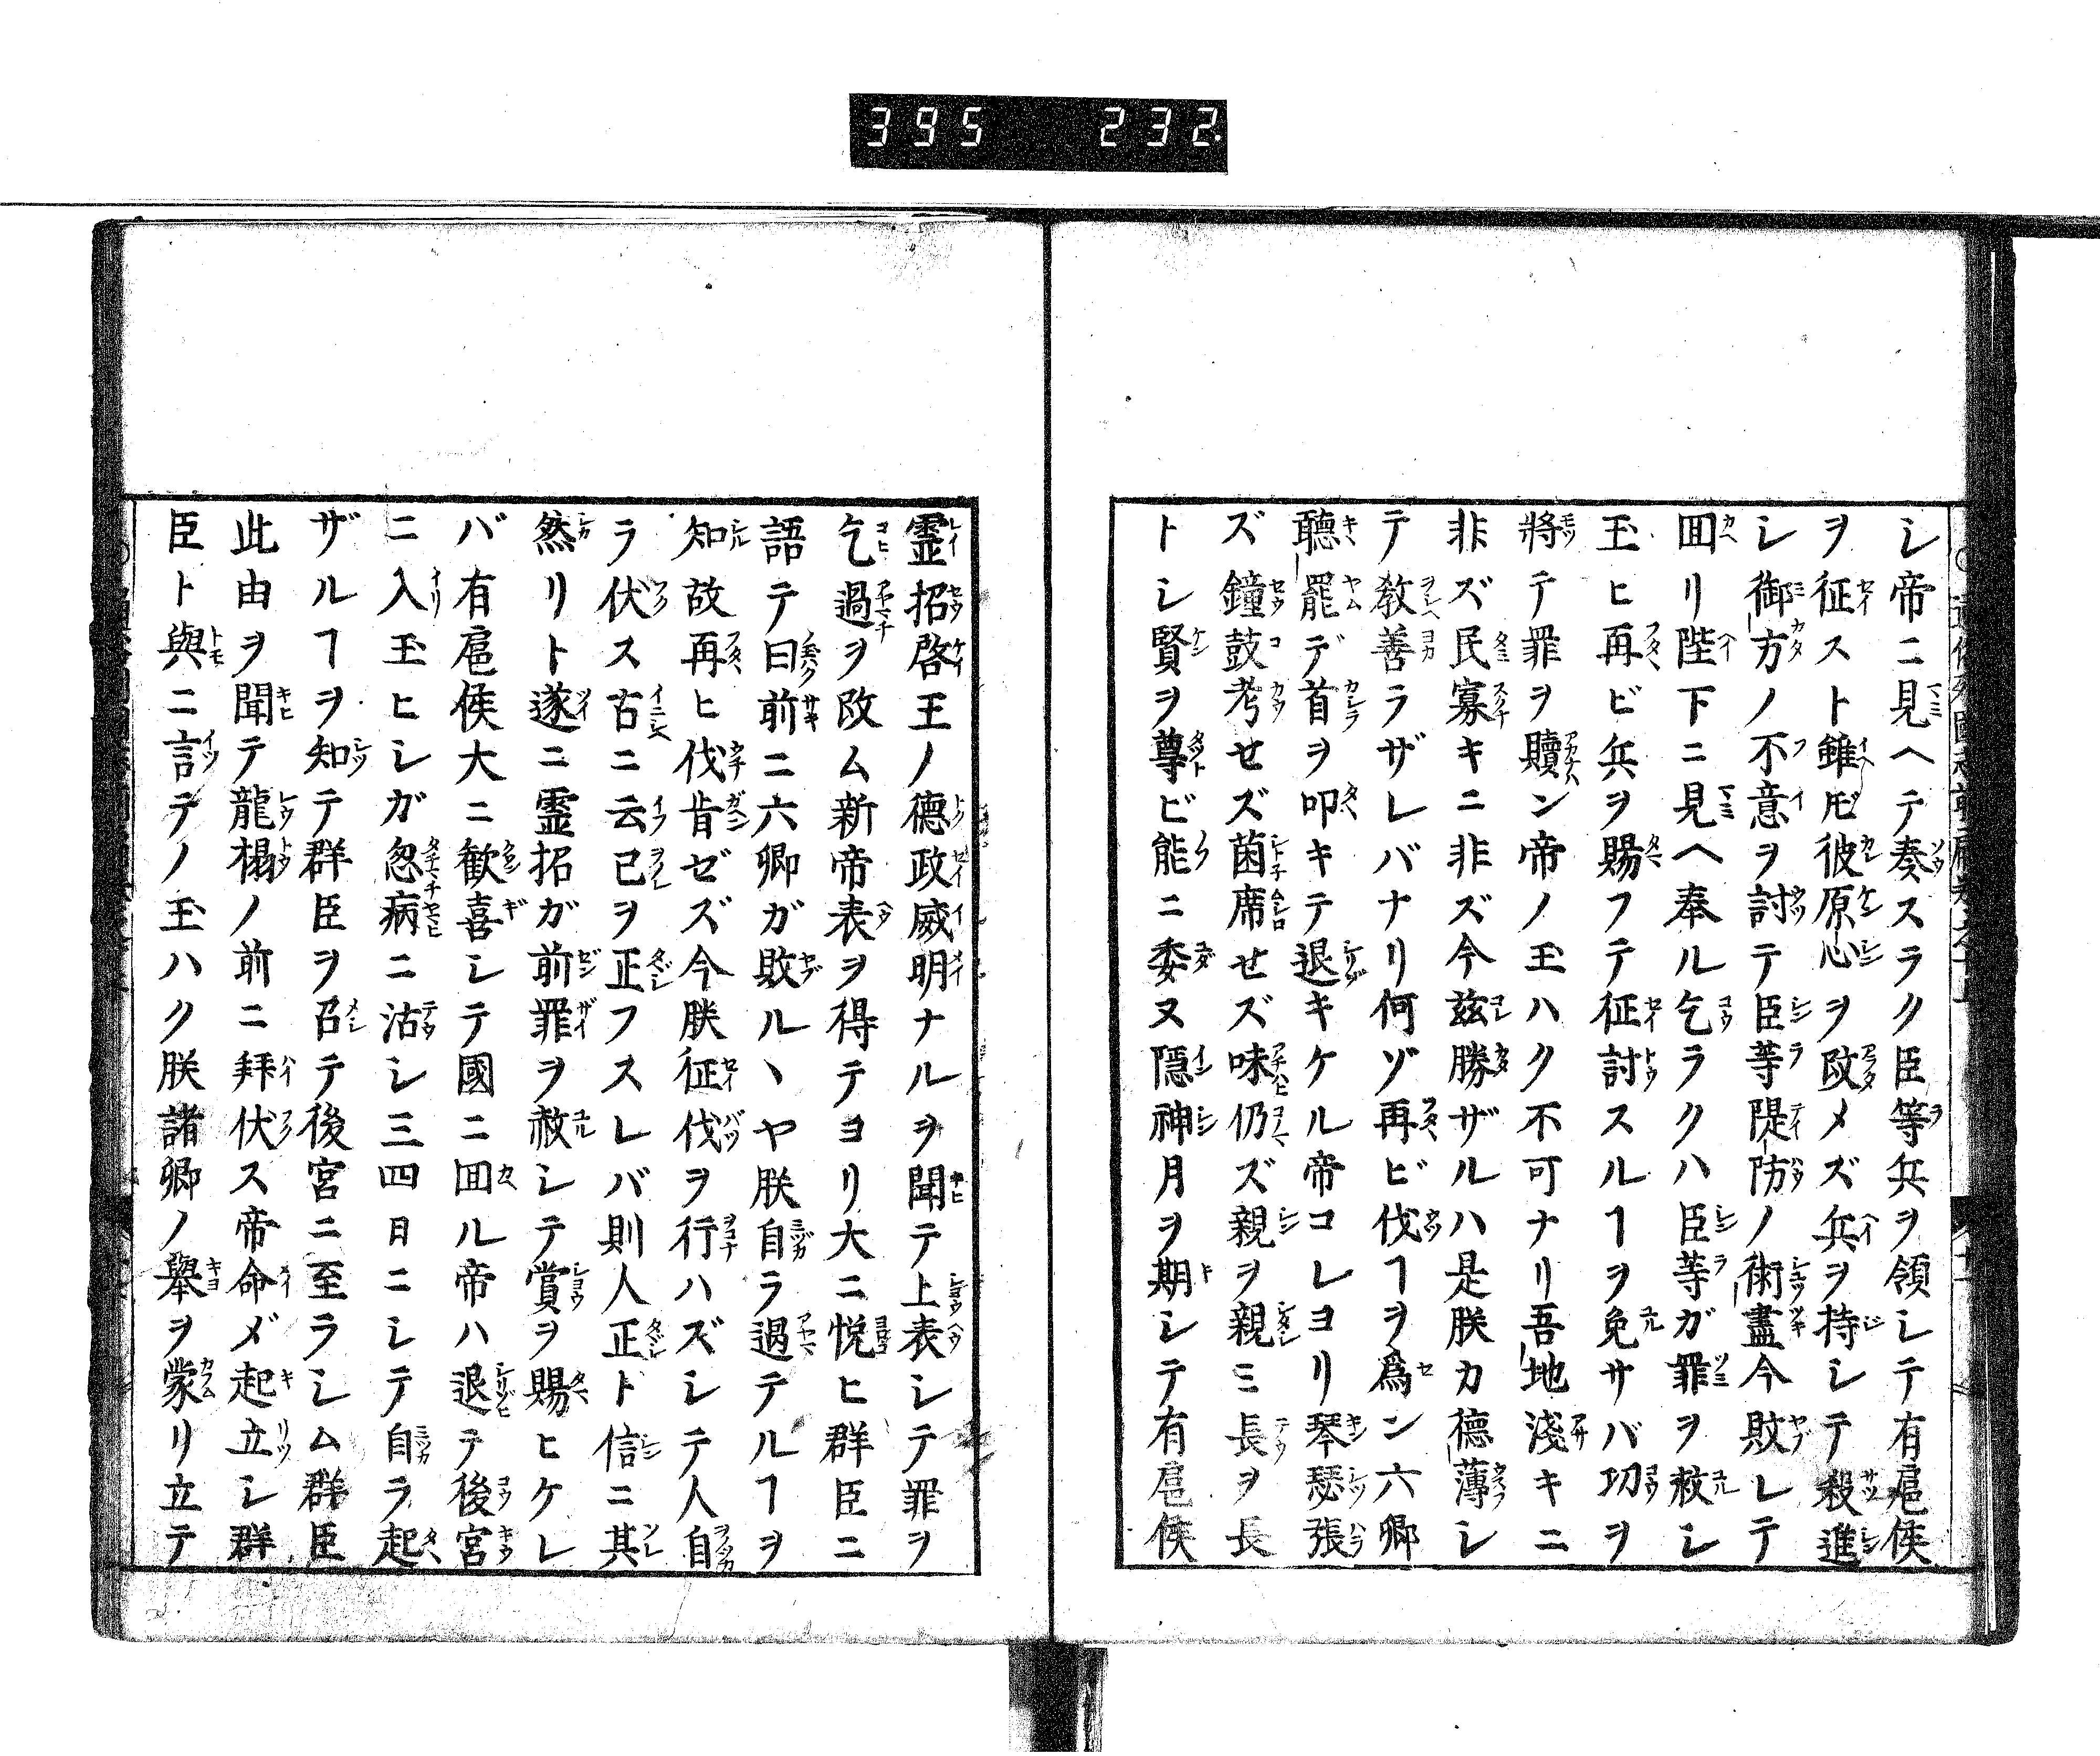 395 232
シ帝ニ見ヘテ奏スラク臣等兵ヲ領シテ有扈侯
ヲ征スト雖𪜈彼原心ヲ改メズ兵ヲ持シテ殺進
シ御方ノ不意ヲ討テ臣等隄防ノ術盡今敗レテ
囬リ陛下ニ見ヘ奉ル乞ラクハ臣等ガ罪ヲ赦シ
玉ヒ再ビ兵ヲ賜フテ征討スルヿヲ免サバ功ヲ
將テ罪ヲ贖ン帝ノ玉ハク不可ナリ吾地淺キニ
非ズ民寡キニ非ズ今茲勝ザルハ是朕カ德薄シ
テ敎善ラザレバナリ何ゾ再ビ伐ヿヲ爲ン六卿
聽罷デ首ヲ叩キテ退キケル帝コレヨリ琴瑟張
ズ鐘鼓考せズ菌席せズ味仍ズ親ヲ親ミ長ヲ長
トシ賢ヲ尊ビ能ニ委又隠神月ヲ期シテ有扈侯
霊招啓王ノ德政威明ナルヲ聞テ上表シテ罪ヲ
乞過ヲ改ム新帝表ヲ得テヨリ大ニ悦ヒ群臣ニ
語テ曰前ニ六卿ガ敗ルヽヤ朕自ラ過テルヿヲ
知故再ヒ伐肯ゼズ今朕征伐ヲ行ハズシテ人自
ラ伏ス古ニ云己ヲ正フスレバ則人正ト信ニ其
然リト遂ニ霊招ガ前罪ヲ赦シテ賞ヲ賜ヒケレ
バ有扈侯大ニ歓喜シテ國ニ囬ル帝ハ退テ後宮
ニ入玉ヒシガ怱病ニ沾シ三四日ニシテ自ラ起
ザルヿヲ知テ群臣ヲ召テ後宮ニ至ラシム群臣
此由ヲ聞テ龍榻ノ前ニ拜伏ス帝命メ起立シ群
臣ト與ニ言テノ玉ハク朕諸卿ノ擧ヲ蒙リ立テ